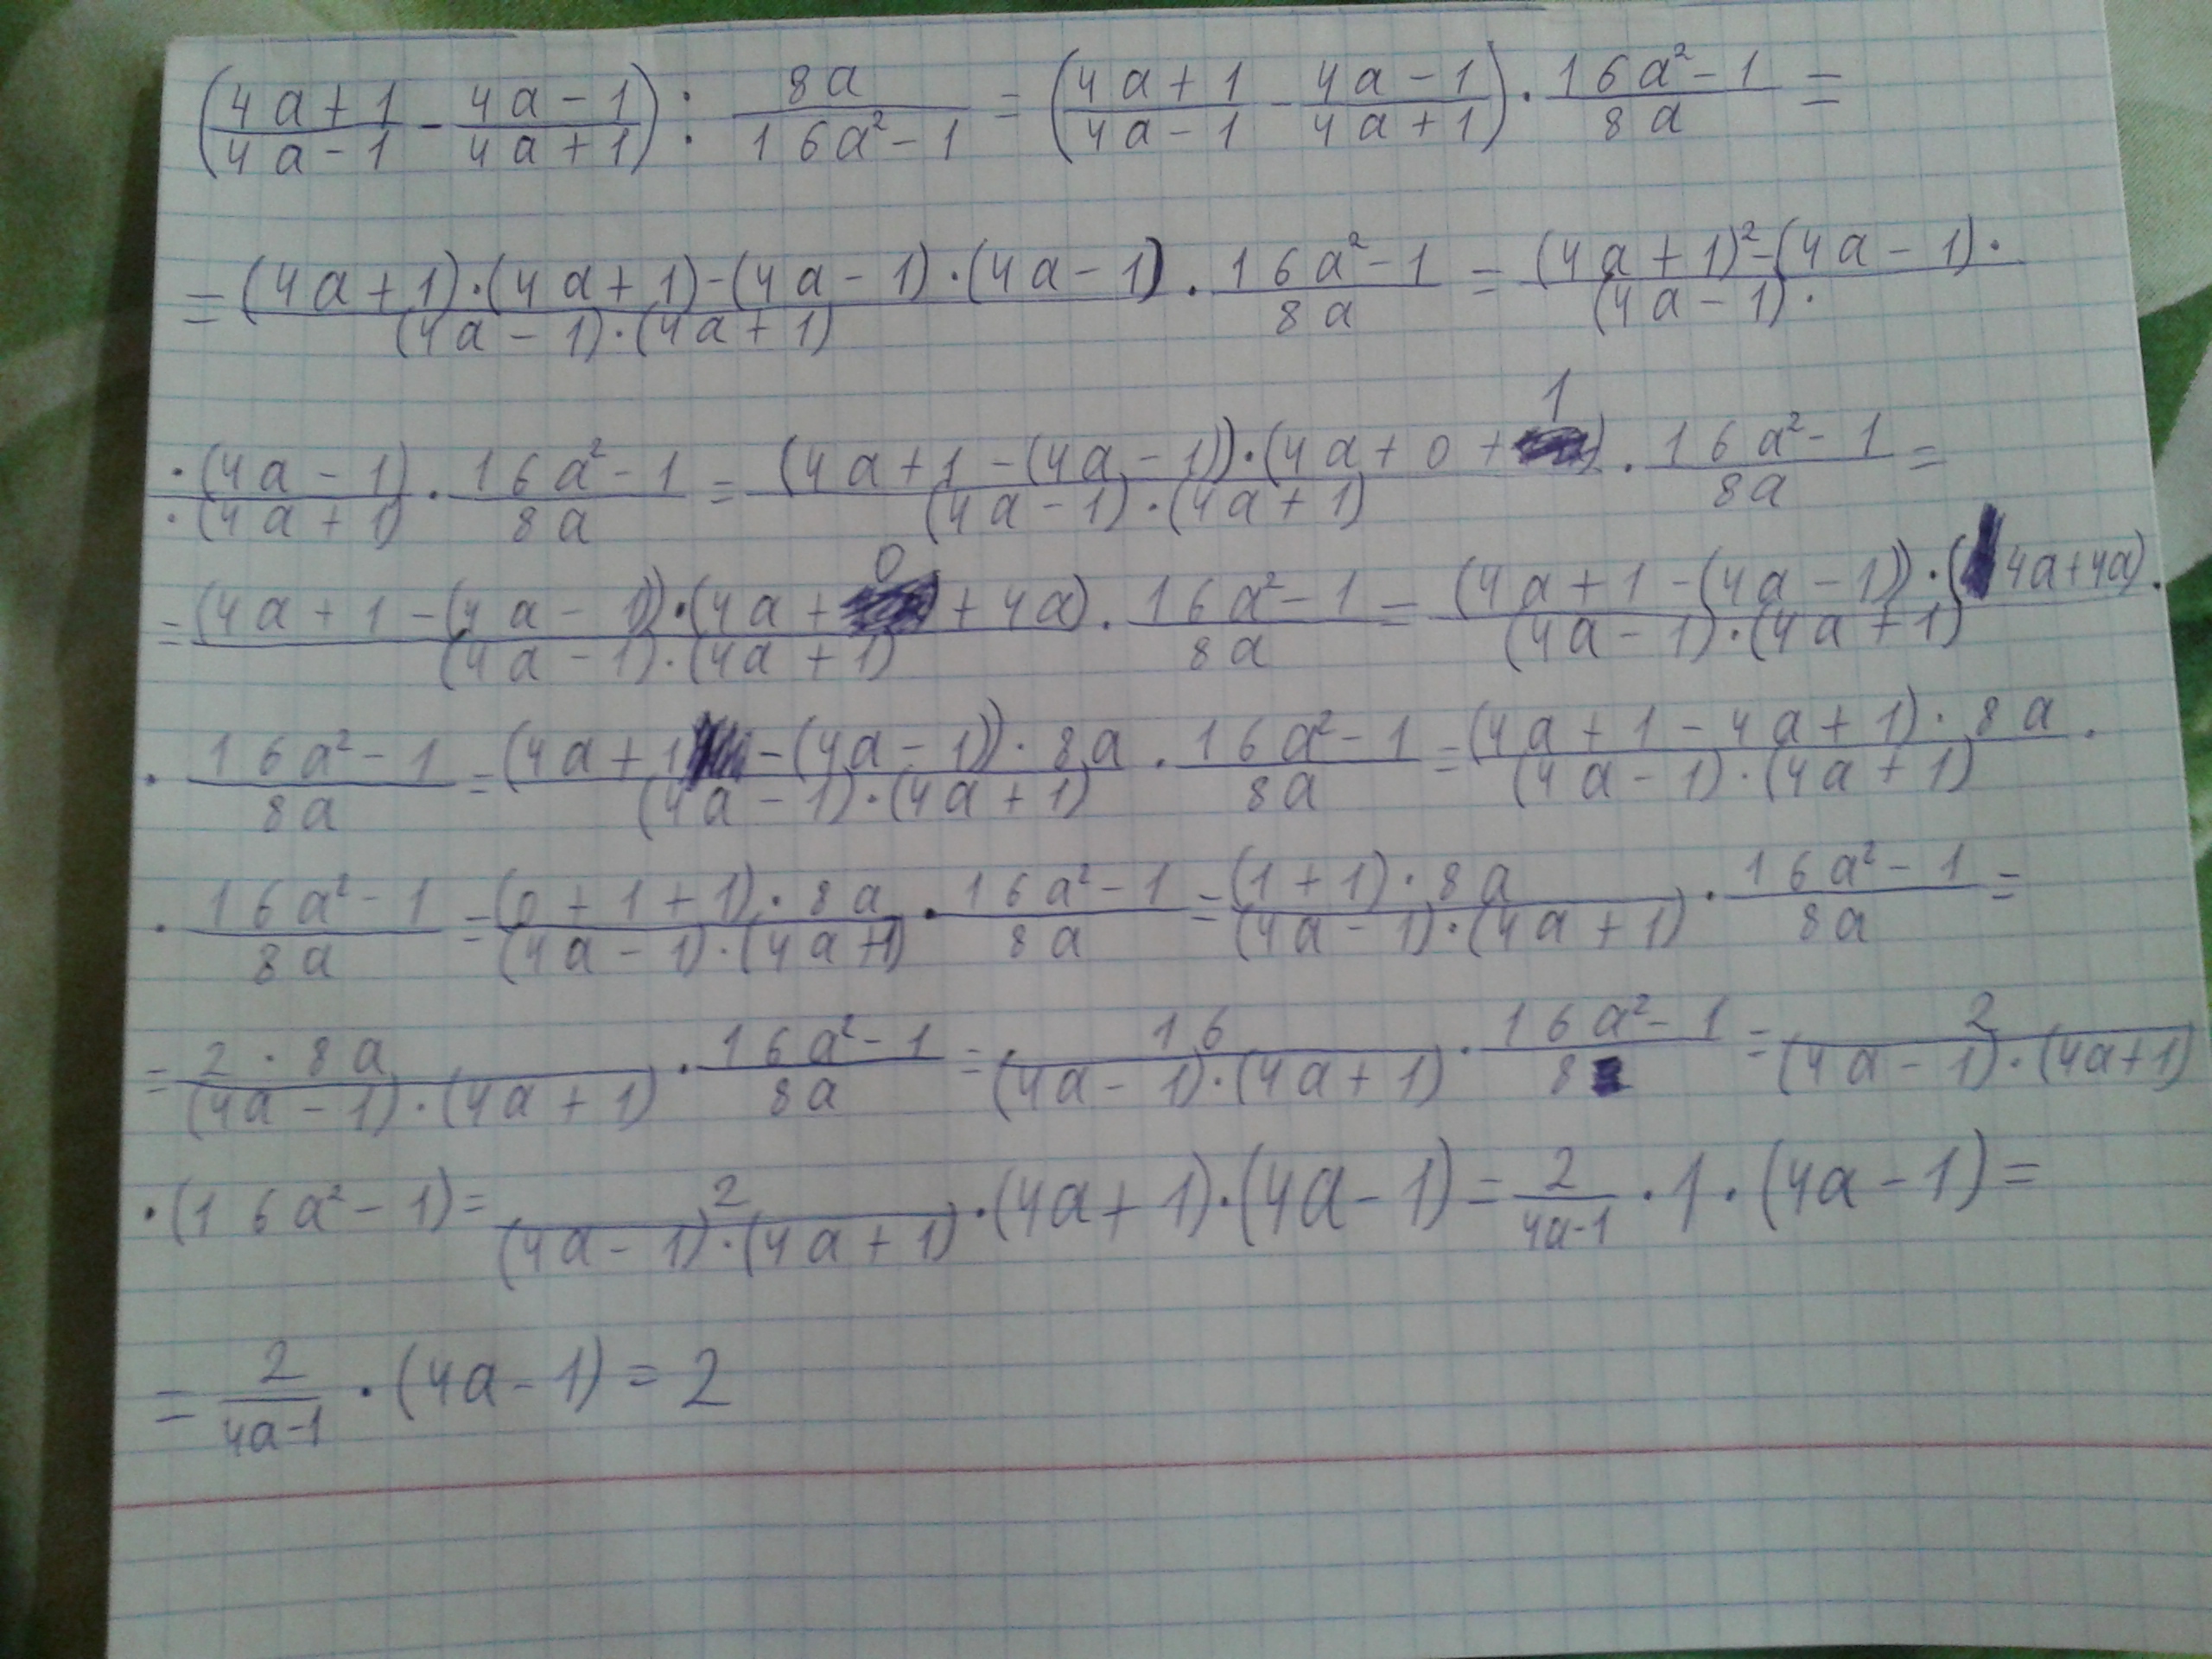 (4a+1/4a-1 - 4a-1/4a+1) : 8a/16a²-1 = (4a+1/4a-1 - 4a-1/4a+1) · 16a²-1/8a =
= (4a+1)·(4a+1)-(4a-1)·(4a-1)/(4a-1)·(4a+1) · 16a²-1/8a = (4a+1)²-(4a-1)·/(4a-1)·
·(4a-1)/·(4a+1) · 16a²-1/8a = (4a+1-(4a-1))·(4a+0+1)/(4a-1)·(4a+1) · 16a²-1/8a =
= (4a+1-(4a-1))·(4a+0+4a)/(4a-1)·(4a+1) · 16a²-1/8a = (4a+1-(4a-1))·(4a+4a)/(4a-1)·(4a+1) ·
· 16a²-1/8a = (4a+1-(4a-1))·8a/(4a-1)·(4a+1) · 16a²-1/8a = (4a+1-4a+1)·8a/(4a-1)·(4a+1) ·
· 16a²-1/8a = (0+1+1)·8a/(4a-1)·(4a+1) · 16a²-1/8a = (1+1)·8a/(4a-1)·(4a+1) · 16a²-1/8a =
= 2·8a/(4a-1)·(4a+1) · 16a²-1/8a = 16/(4a-1)·(4a+1) · 16a²-1/8 = 2/(4a-1)·(4a+1)
·(16a²-1) = 2/(4a-1)·(4a+1) ·(4a+1)·(4a-1) = 2/4a-1 · 1 · (4a-1) =
= 2/4a-1 · (4a-1) = 2